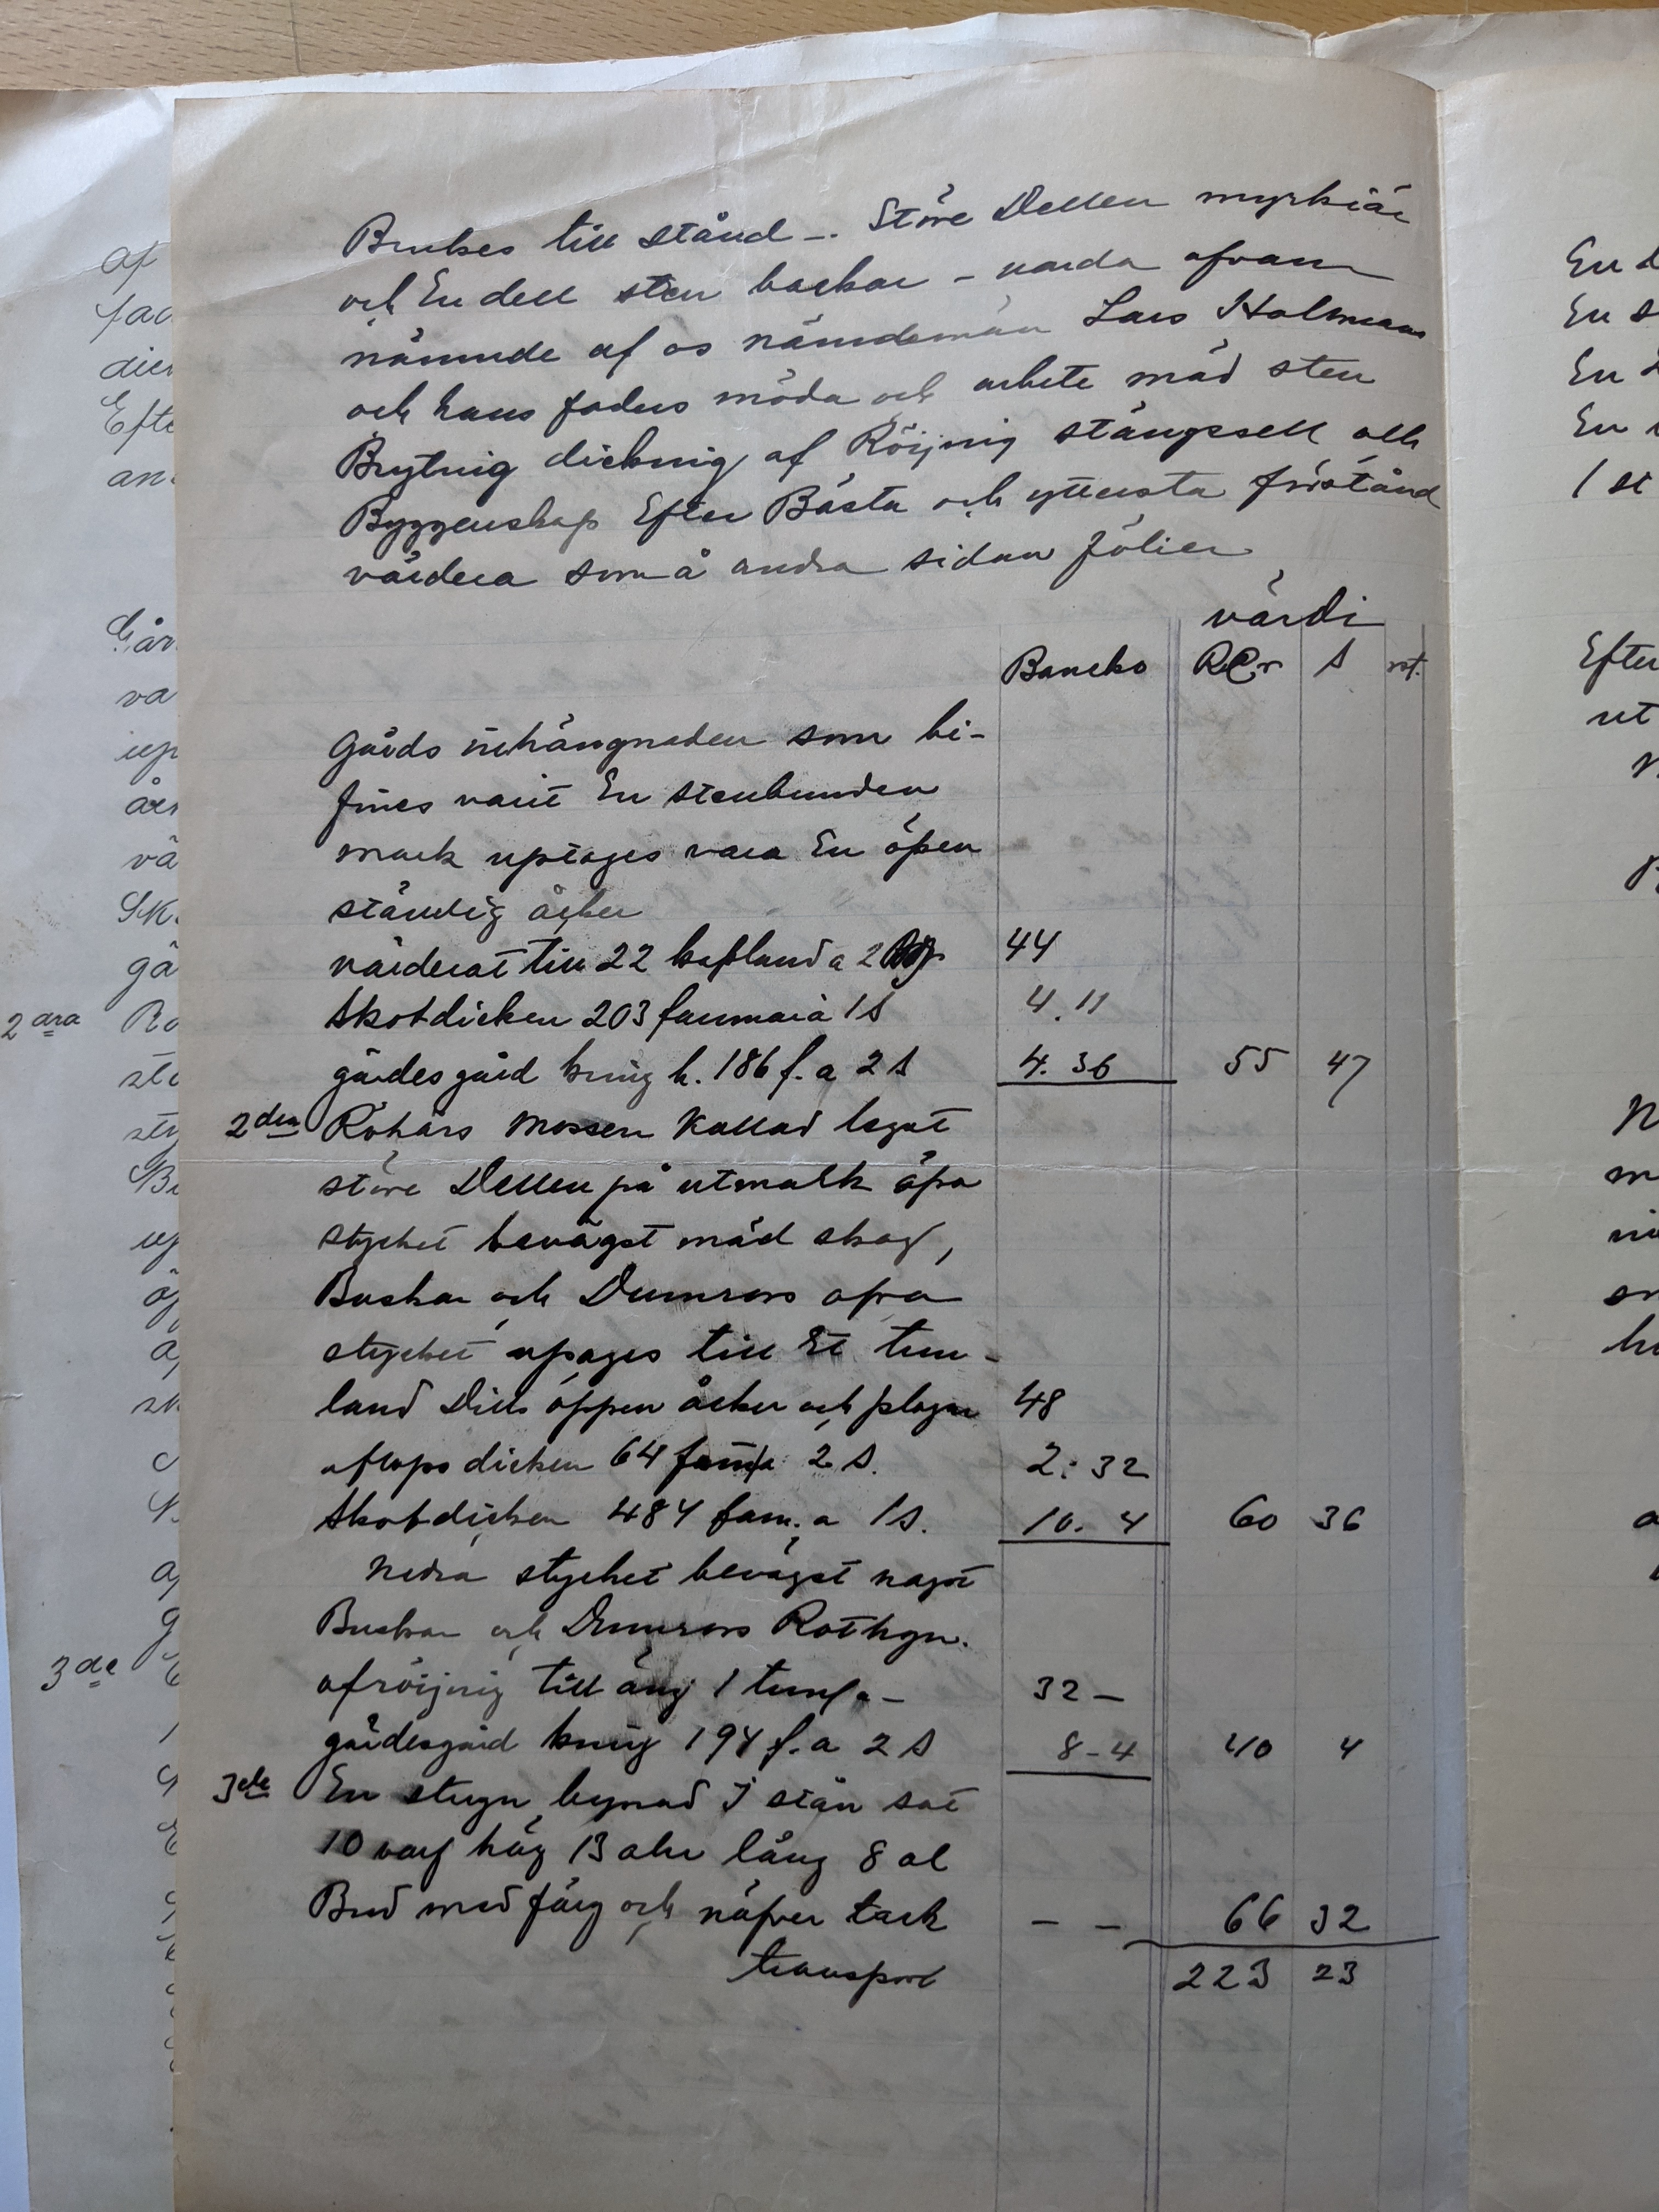 Brukes till stånd -. Större Dellen myrkiär
och En dell sten backar - varda ofvan
nämnde af os nämdemän Lars Holmens
och hans faders möda och arbete mäd sten
Brytnig dicknig af Röijnig stängsell och
Byggenskap Efter Bästa och ytterista förstånd
värdera som å andra sidan fölier
värdi
Bancko RDr s rst.
Gårds inhängnaden som bi-
fines varit En stenbunden
mark uptages vara En öpen
ständig åcker
värderat till 22 kapland a 2 44
Skotdicken 203 famnar à 1 s 4.11
gärdesgård kring h. 186 f. a 2 s 4. 36 55 47
2dra Rökärs Mossen Kallad legat
störe Dellen på utmark öpa
stycket bevägst mäd skog,
Buskar och Dumrors öpra
stycket upages till Et tun-
land Dito öppen åcker och plogar 48
aflops dicken 64 famn a 2 s. 2: 32
Skotdicken 484 fam. a 1 s. 10. 4 60 36
Nedra stycket bevägst något
Buskar och Dumrors Rothgn.
afröijnig till äng 1 tunl a - 32 -
gärdesgård kring 194 f. a 2 s 8 - 4 40 4
3de En stugu bygnad I stån sat
10 varf hög 13 alnr lång 8 al
Bred med färg och näfver tack - - 66 32
transport 223 23
af
Efte
Går
va
vä
gä
2dra
3de
En
En s
En
En
1 st
Efter
ut